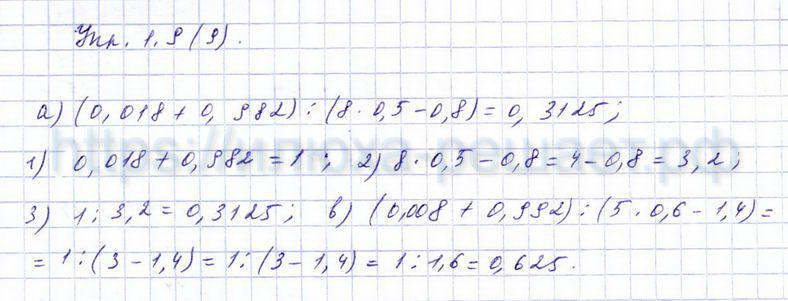 Упр. 1.9(9).
а) (0,018 + 0,982) : (8 · 0,5 - 0,8) = 0,3125;
1) 0,018 + 0,982 = 1; 2) 8 · 0,5 - 0,8 = 4 - 0,8 = 3,2;
3) 1 : 3,2 = 0,3125; в) (0,008 + 0,992) : (5 · 0,6 - 1,4) =
= 1 : (3 - 1,4) = 1 : (3 - 1,4) = 1 : 1,6 = 0,625.